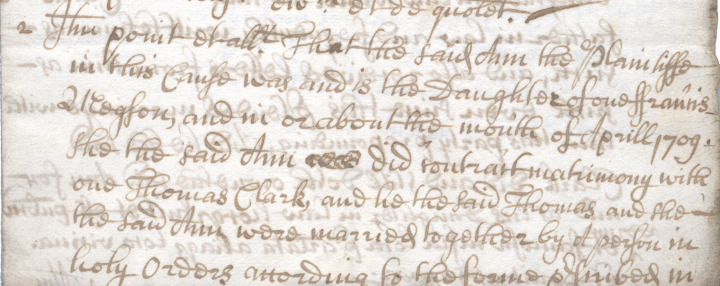 et de quolet.
2 Item ponit et all't That the said Ann the Plaintiffe
in this Cause was and is the Daughter of one ffrancis
Megson, and in or about the month of Aprill 1709.
she the said Ann did contract matrimony with
one Thomas Clark, and he the said Thomas and she
the said Ann were married together by a person in
holy Orders according to the forme p'scribed in